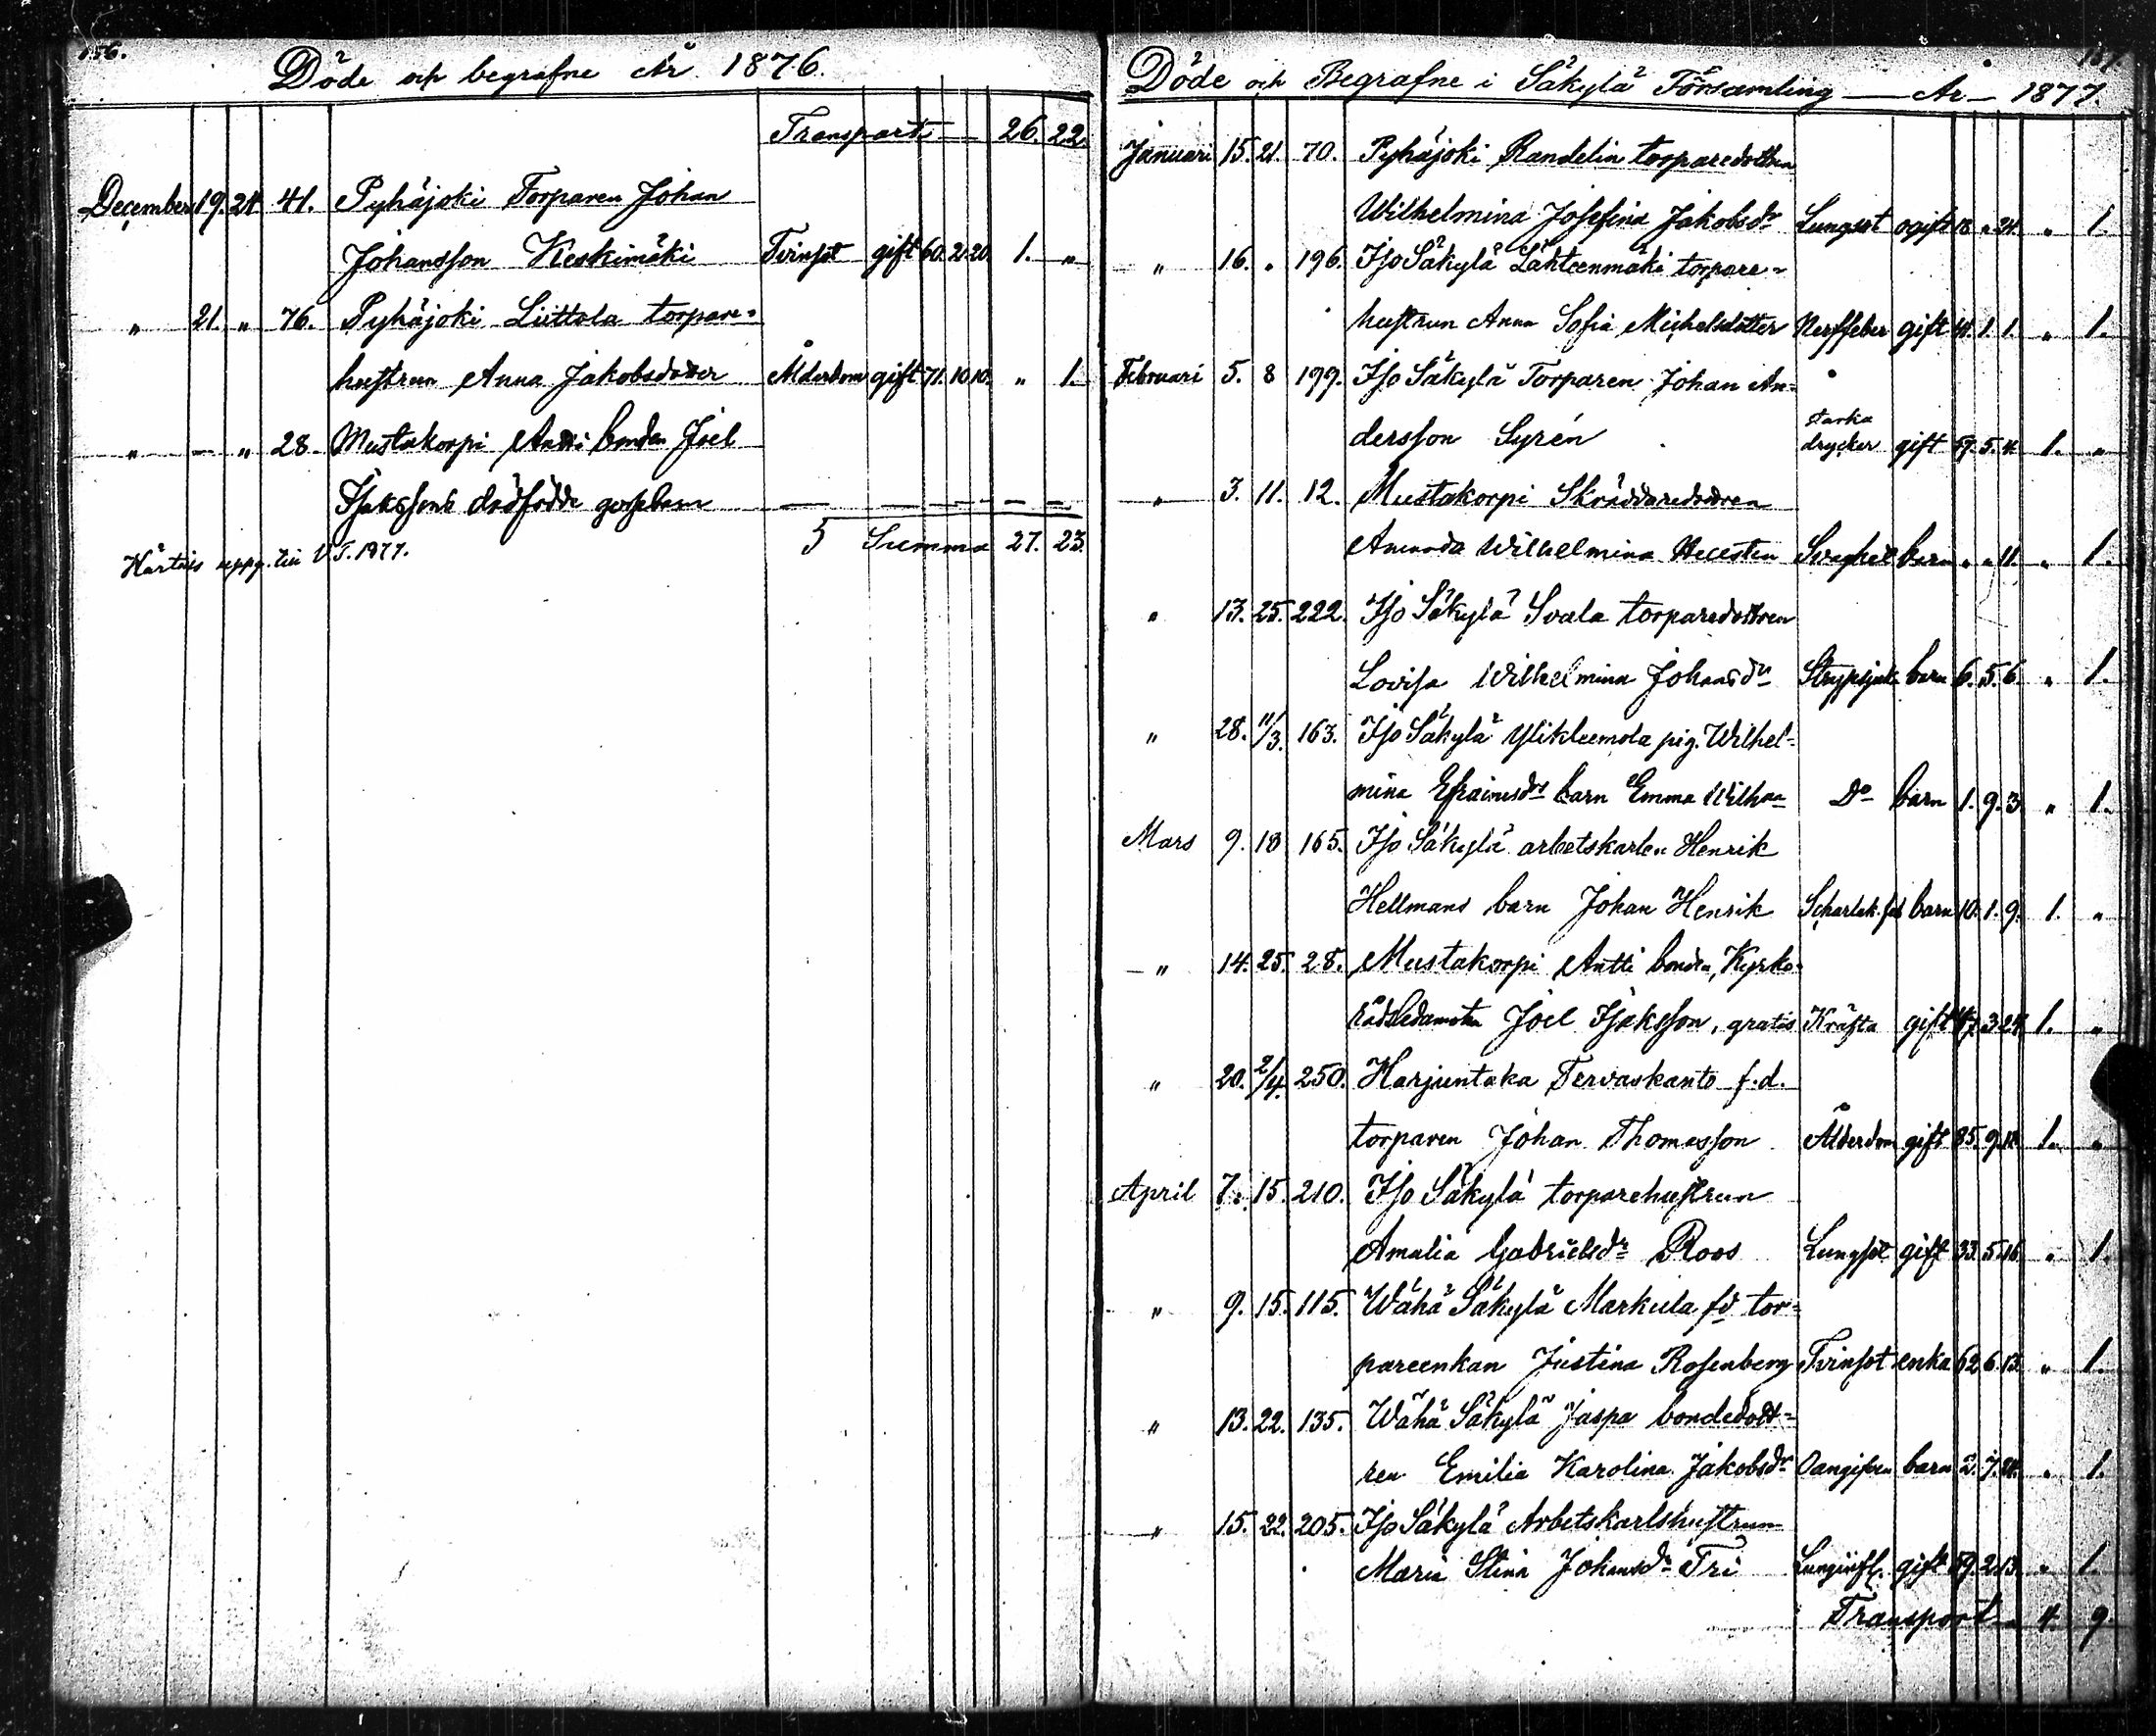 156.
Döde och begrafne År 1876.
Transport 26. 22.
December 19. 24. 41. Pyhäjoki Torparen Johan
Johansson Keskimäki Tvinsot gift 60. 2. 20. 1. "
" 21. " 76. Pyhäjoki Liittola torpare-
hustrun Anna Jakobsdotter Ålderdom gift 71. 10. 10. " 1.
" — " 28. Mustakorpi Antti bonden Joel
Isakssons dödfödda gossebarn — — — — — —
5 Summa 27. 23.
Härtills uppg. till V.T. 1877.
157.
Döde och Begrafne i Säkylä Församling — År — 1877.
Januari 15. 21. 70. Pyhäjoki Randelin torparedottren
Wilhelmina Josefina Jakobsdr Lungsot ogift 18. " 24. " 1.
" 16. " 196. Iso Säkylä Lähteenmäki torpare-
hustrun Anna Sofia Michelsdotter Nerffeber gift 41. 1. 1. " 1.
Februari 5. 8 199. Iso Säkylä Torparen Johan An-
dersson Syrén starka drycker gift 59. 5. 4. 1. "
" 3. 11. 12. Mustakorpi Skräddaredottren
Amanda Wilhelmina Hellsten Svaghet barn " " 11. " 1.
" 13. 25. 222. Iso Säkylä Svala torparedottren
Lovisa Wilhelmina Johansdr Strypsjuka barn 6. 5. 6. " 1.
" 28. 11/3. 163. Iso Säkylä Ylikleemola pig. Wilhel-
mina Efraimsdrs barn Emma Wilhna Do barn 1. 9. 3. " 1.
Mars 9. 18 165. Iso Säkylä arbetskarlen Henrik
Hellmans barn Johan Henrik Scharlak.feb barn 10. 1. 9. 1. "
" 14. 25. 28. Mustakorpi Antti bonden, Kyrko-
rådsledamoten Joel Isaksson, gratis Kräfta gift 47. 3. 24. 1. "
" 20. 2/4. 250. Harjuntaka Tervaskanto f.d.
torparen Johan Thomasson Ålderdom gift 85. 9. 12. 1. "
April 7. 15. 210. Iso Säkylä torparehustrun
Amalia Gabrielsdr Roos Lungsot gift 33. 5. 16. " 1.
" 9. 15. 115. Wähä Säkylä Markula fd tor-
pareenkan Justina Rosenberg Tvinsot enka 62. 6. 13. " 1.
" 13. 22. 135. Wähä Säkylä Jaspa bondedott-
ren Emilia Karolina Jakobsdr Oangifven barn 2. 7. 24. " 1.
" 15. 22. 205. Iso Säkylä Arbetskarlshustrun
Maria Stina Johansdr Tri Lunginfl. gift 59. 2. 13. " 1.
Transport 4. 9.